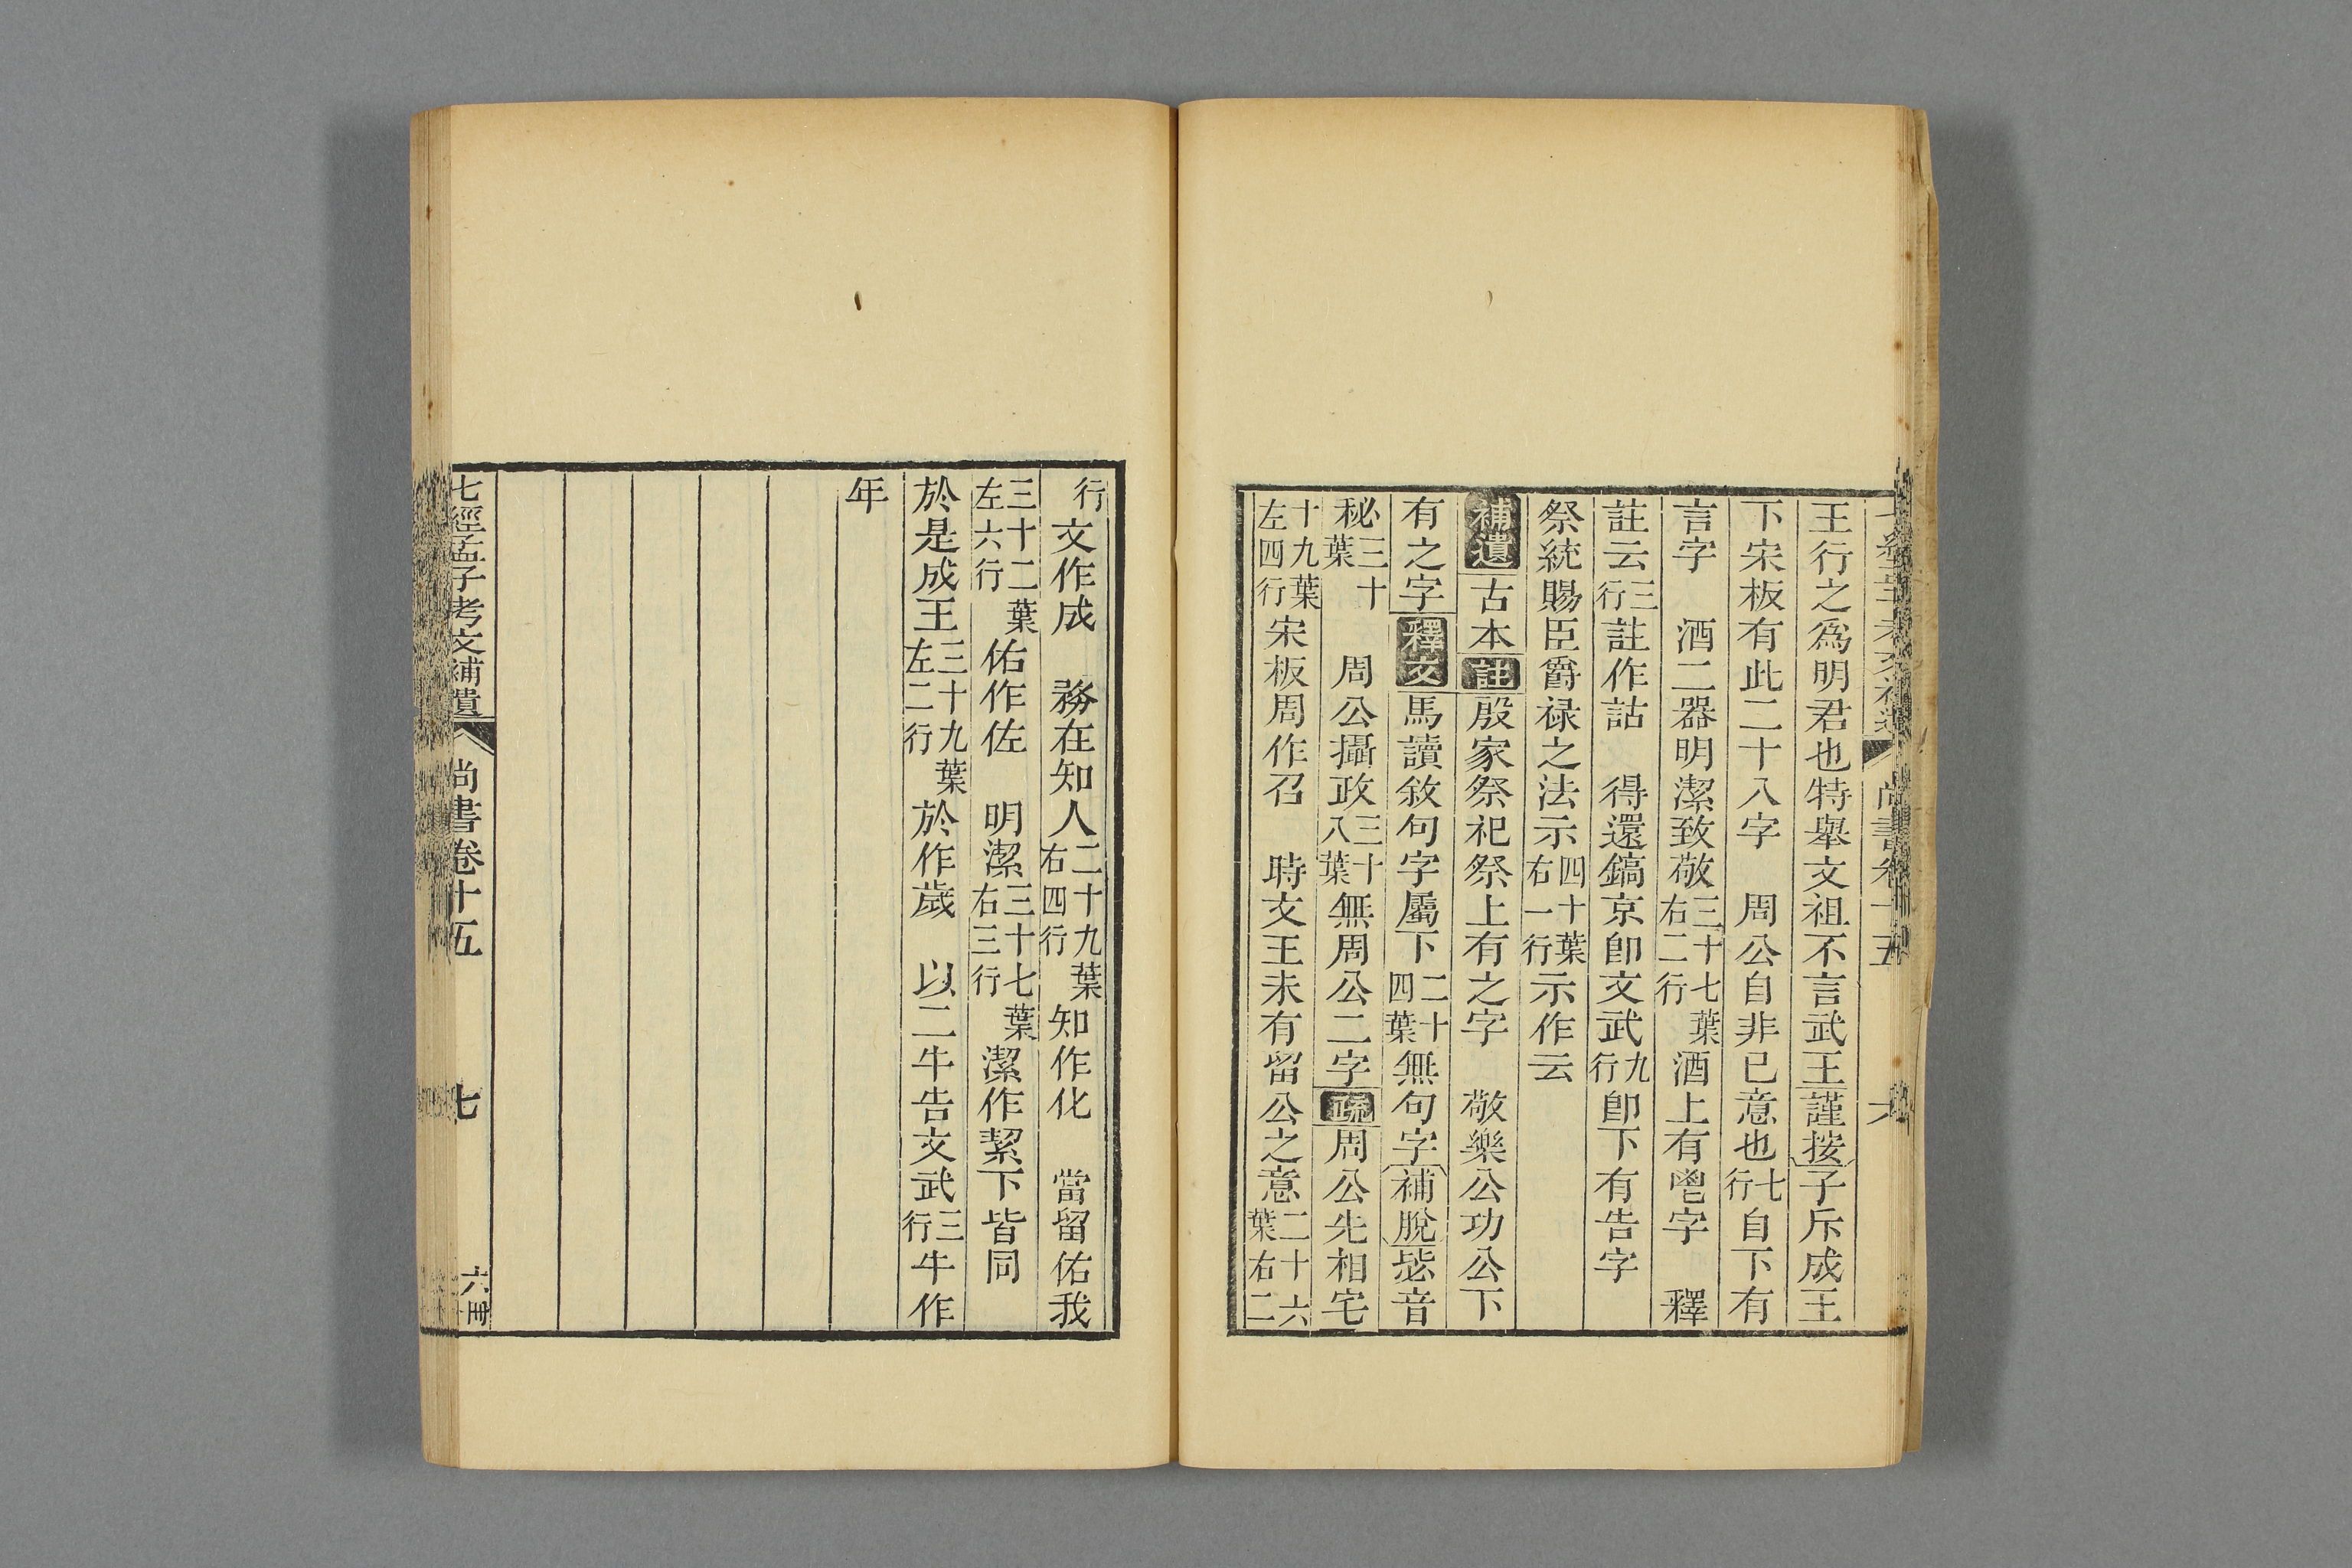 王行之爲明君也特舉文祖不言武王謹按子斥成王
下宋板有此二十八字　周公自非已意也七行自下有
言字　酒二器明潔致敬三十七葉右二行酒上有鬯字　釋
註云三行註作詁　得還鎬京卽文武九行卽下有告字
祭統賜臣爵禄之法示四十葉右一行示作云
補遺古本註殷家祭祀祭上有之字　敬樂公功公下
有之字釋文馬讀敘句字屬下二十四葉無句字補脫毖音
秘三十葉　周公攝政三十八葉無周公二字疏周公先相宅
十九葉左四行宋板周作召　時文王未有留公之意二十六葉右二
行文作成　務在知人二十九葉右四行知作化　當留佑我
三十二葉左六行佑作佐　明潔三十七葉右三行潔作絜下皆同
於是成王三十九葉左二行於作歲　以二牛告文武三行牛作
年
七經孟子考文補遺　尚書卷十五　七